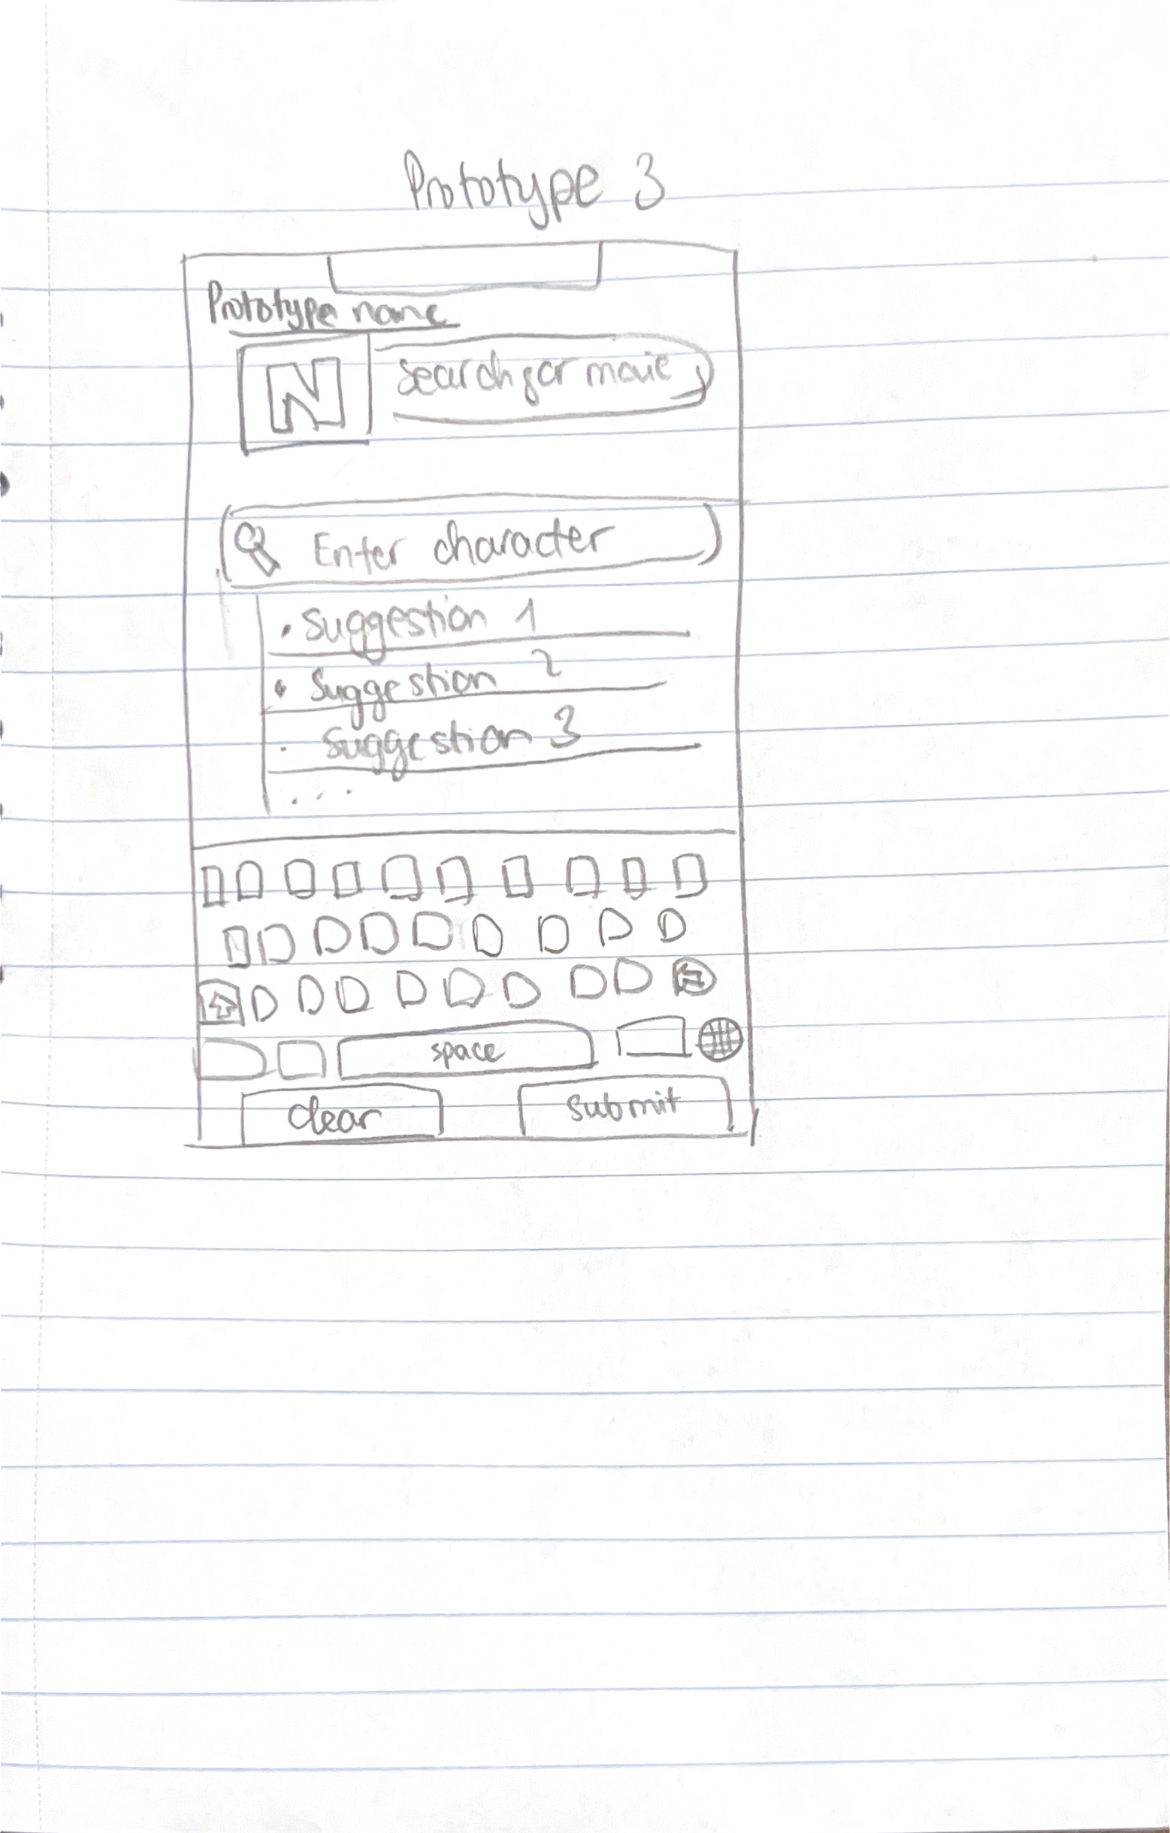 Prototype 3
Prototype name
N
Search for movie
Enter character
• Suggestion 1
• Suggestion 2
• Suggestion 3
...
space
clear
submit